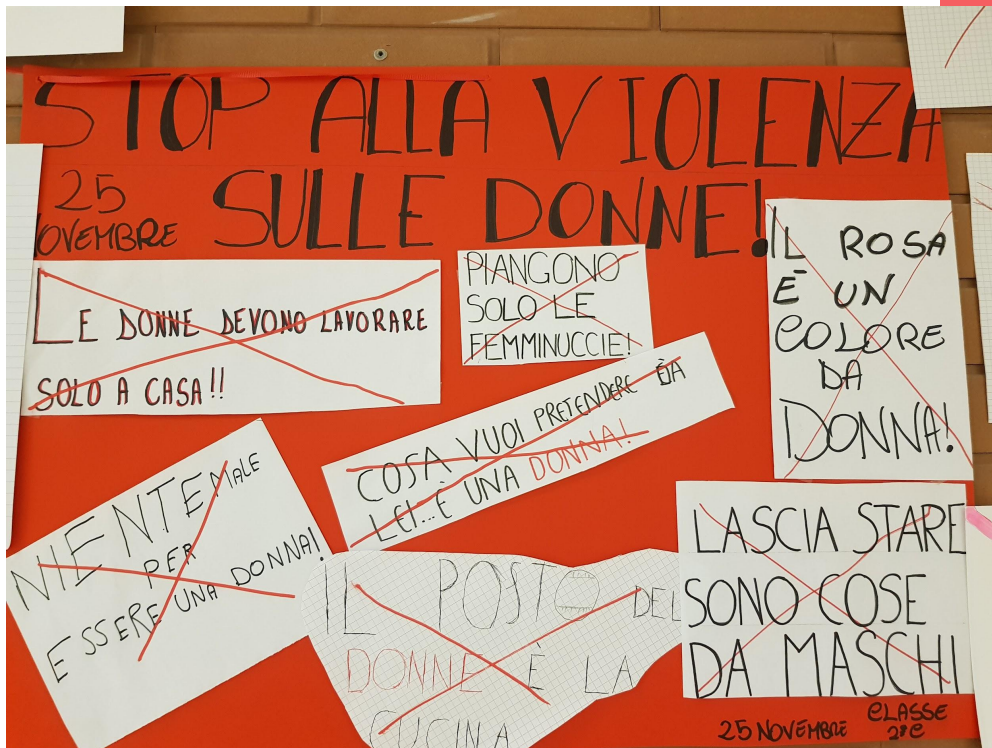 STOP ALLA VIOLENZA
SULLE DONNE!
25
NOVEMBRE
LE DONNE DEVONO LAVORARE
SOLO A CASA!!
PIANGONO
SOLO LE
FEMMINUCCIE!
IL ROSA
È UN
COLORE
DA
DONNA!
COSA VUOI PRETENDERE DA
LEI...È UNA DONNA!
NIENTE MALE
PER
ESSERE UNA DONNA!
IL POSTO DEL
DONNE È LA
CUCINA
LASCIA STARE
SONO COSE
DA MASCHI
25 NOVEMBRE CLASSE
2°C